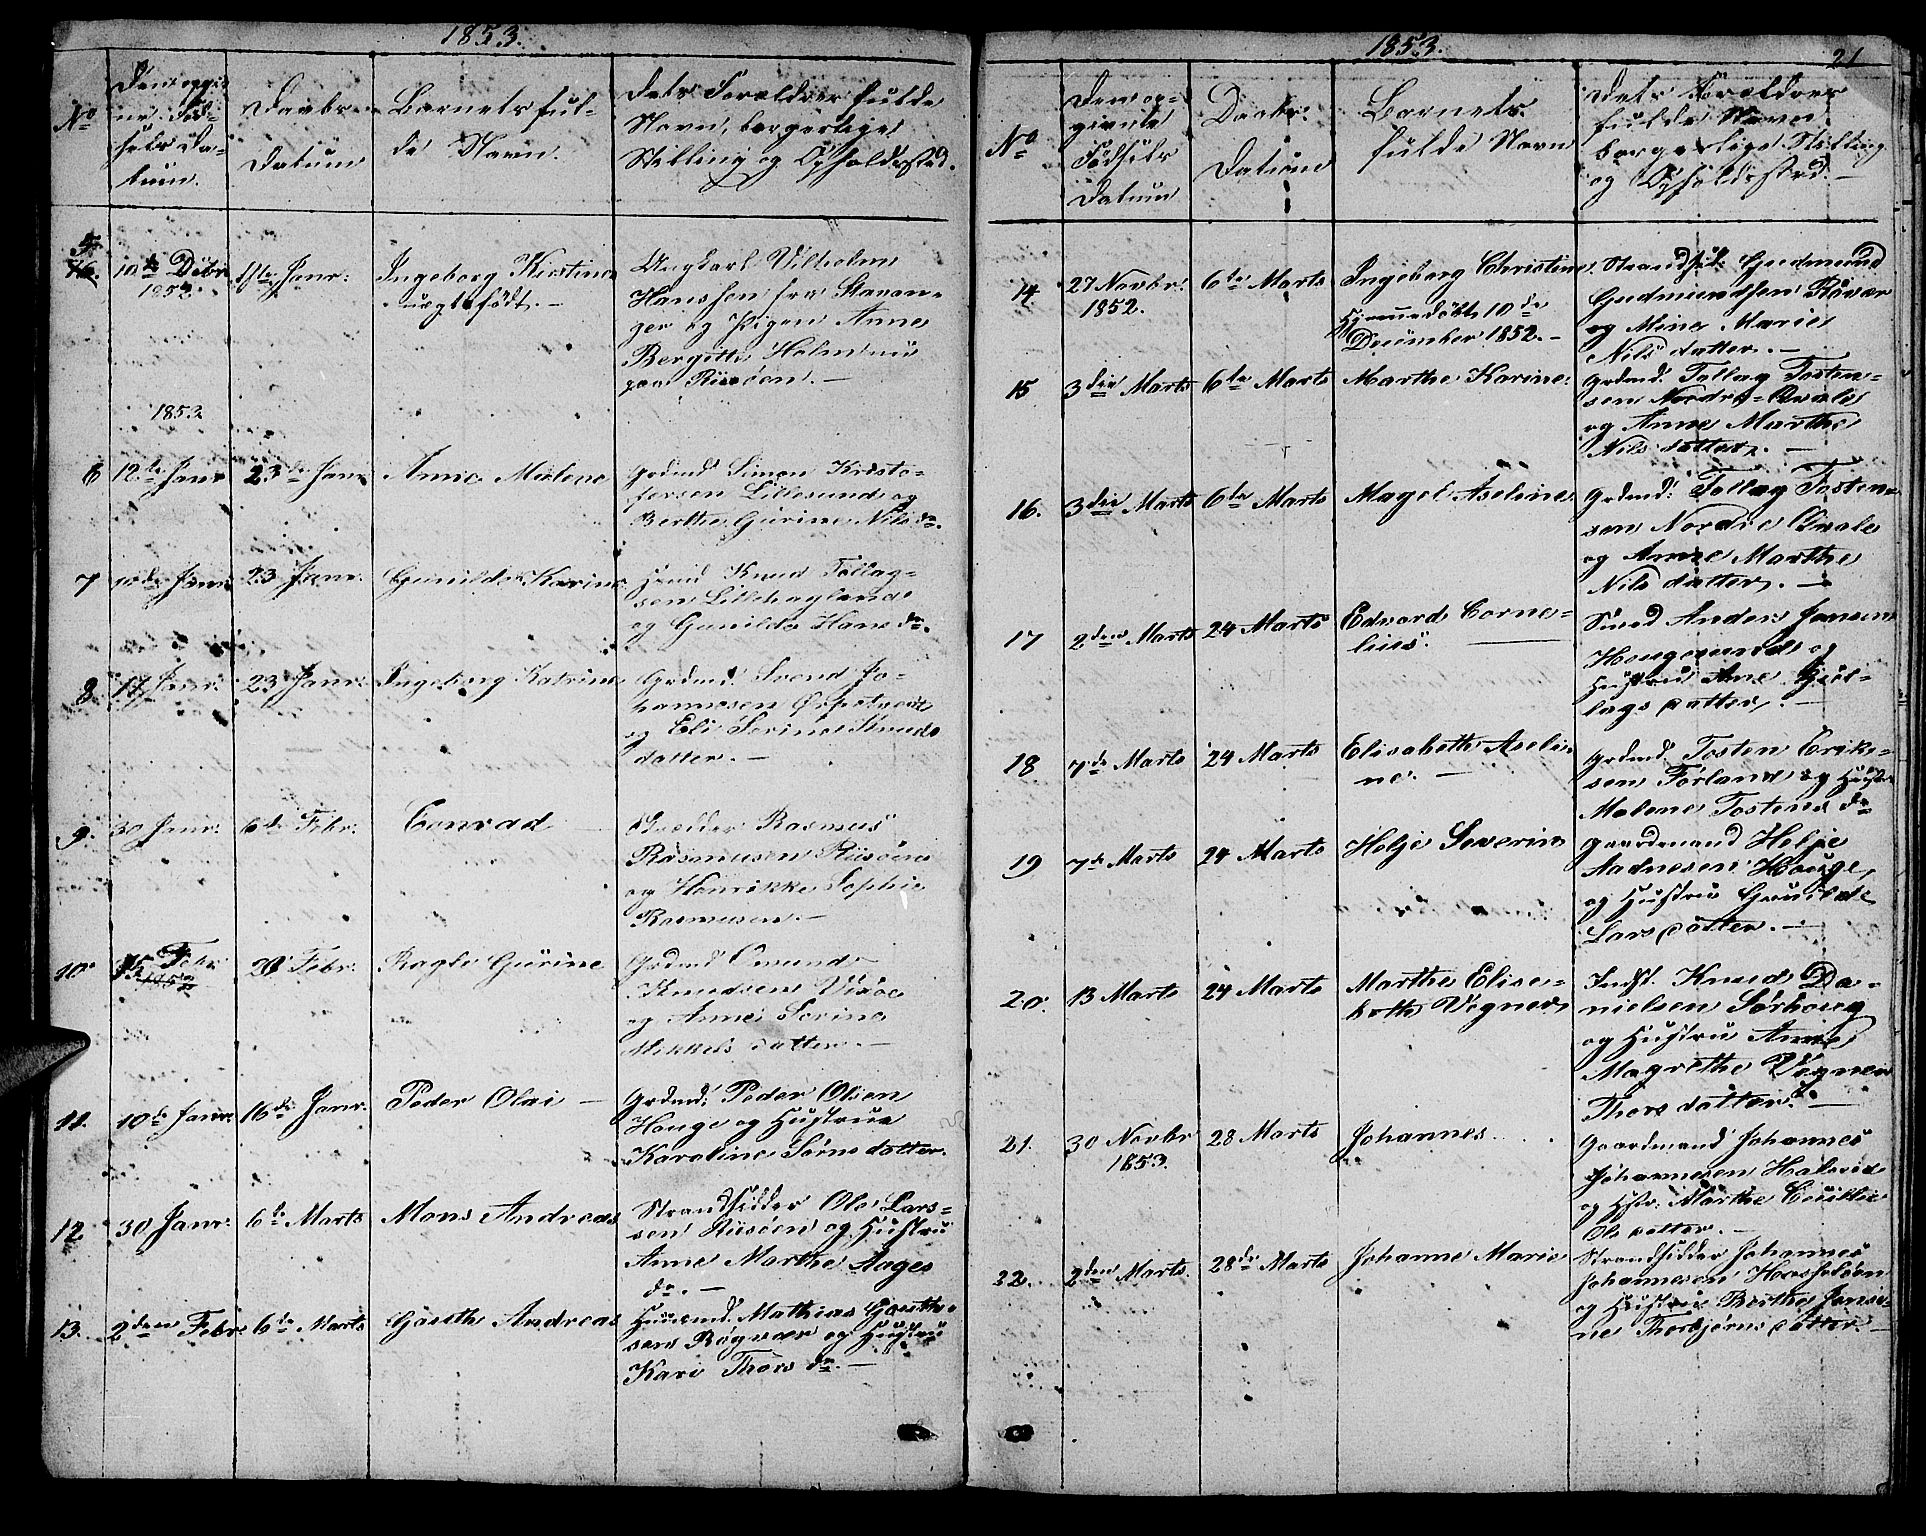 1853.
No
Den opgiv-
ne Fød-
sels Da-
tum.
Daabs
Datum
Barnets ful-
de Navn.
Dets Forældres fulde
Navn, borgerlige
Stilling og Opholdssted.
5
10de Debr
1852
Janr:
Ingeborg Kistine
uægtefödt. -
Ungkarl Vilhelm
Hanssen fra Stavan-
ger og Pigen Anne
Bergitte Holm nu
paa Risöen. -
1853
6
12te Janr
23de Janr
Anne Malene
Grdmd Simon Kristo-
fersen Lillesund og
Berthe Gurine Nils dr.
7
Janr:
23 Janr:
Gunilde Karine
Knud Tollag-
sen Lillehaglande
og Gunilde Hans dr.
8
17 Janr:
23 Janr:
Ingeborg Katrine
Grdmd. Svend Jo-
hannesen
og Eli Serine Knuds
datter. -
9.
30 Janr:
6te Febr:
Conrad
Rasmus
Rasmusen Risöen
og Henrikke Sophie
Rasmusen. -
10.
15 Febr
20 Febr:
Ragle Gurine
Grdmd Omund
Knudsen Vixöe
og Anne Serine
Mikkels datter. -
11.
10de Janr.
16de Janr.
Peder Olai -
Grdmd: Peder Olsen
Houge og Hustrue
Karoline Sörns datter.
12
30 Janr:
6te Marts
Mons Andreas
Strandsidder Ole Lars-
sen Risöen og Hustru
Anne Marthe Aages
dr. -
13.
2den Febr
6te Marts
Gouthe Andreas
Huusmd. Mathias Gouthe-
sen Rögvær og Hustru
Kari Thors dr. -
1853.
21
No
Den op-
givente
Födsels
Datum
Daabs:
Datum
Barnets
fulde Navn
Dets Forældres
fulde Navn.
borgerlige Stilling
og Opholdssted. -
14
27 Novbr:
1852.
6te Marts
Ingeborg Christine
Hjemmedöbt 10de
December 1852. -
Strandsid: Gudmund
Gudmundsen Rövær
og Mine Marie
Nils datter. -
15
3die Marts
6te Marts
Marthe Karine
Grdmd. Tollag Tosten-
sen Nordre-Qvale
og Anne Marthe
Nils datter. -
16.
3die Marts
6te Marts
Magel Aseline
Grdmd: Tollag Tosten-
sen Nordre Qvale
og Anne Marthe
Nils datter. -
17
2den Marts
24 Marts
Edvard Corne-
lius.
Smed Anders Jansen
Hougesund og
Hustru Ane Gjul-
lags datter. -
18
7de Marts
24 Marts
Elisabeth Aseli-
ne. -
Grdmd. Tosten Erik-
sen Förland og Hustr
Malene Tostens dr
19
7de Marts
24 Marts
Helje Severin
Gaardmand Helje
Aadnesen Houge,
og Hustru Gunilde
Lars datter. -
20.
13 Marts
24 Marts
Marthe Elise-
beth Vögner
Indst. Knud Da-
nielsen Sörhoug
og Hustru Anne
Magrethe Vögner
Thors datter. -
21.
30 Novbr
1853.
28 Marts
Johannes
Gaardmand Johannes
Johannesen Halevik
og Hstr: Marthe Cecilie
Ols datter. -
22.
2den Marts.
28de Marts
Johanne Marie
Strandsidder Johannes
Johannesen Hasselöen
og Hustrue Berthe Jensi-
ne Thorbjörns datter. -